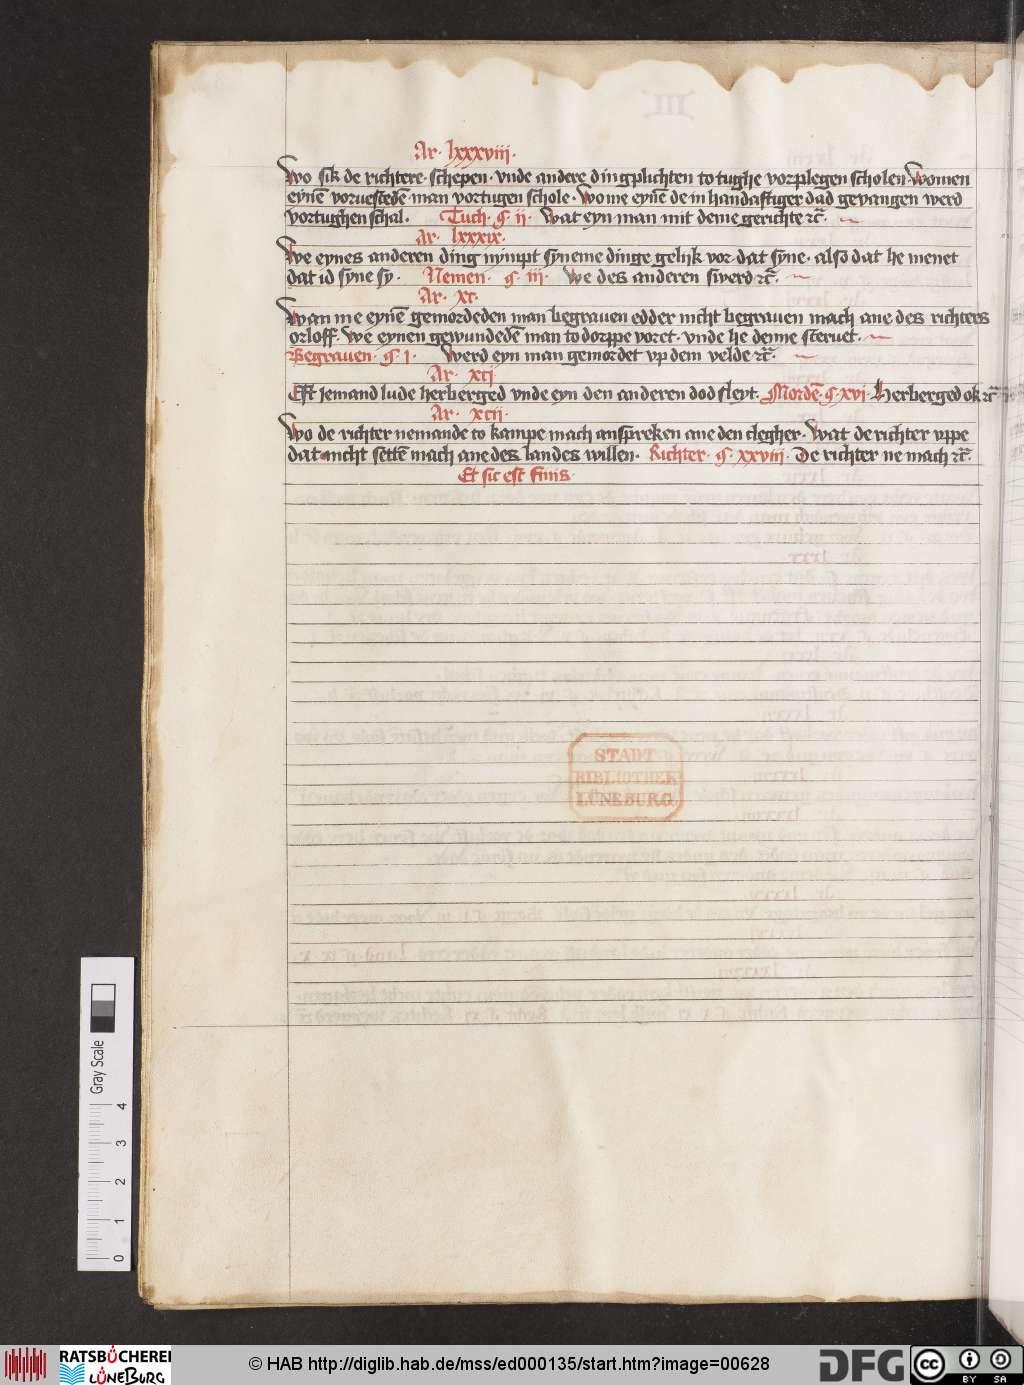 Ar. lxxxviii.
Wo sik de richtere. schepen. vnde andere dingplichten to tughe vorplegen scholen. Women
eynē voruestedē man vortugen schole. Wo me eynē de in handaftiger dad gevangen werd
vortughen schal. Tuch. ¶. ii. Wat eyn man mit deme gerichte ꝛc̄.
Ar. lxxxix.
We eynes anderen ding nympt syneme dinge gelijk vor dat syne. also dat he menet
dat id syne sy. Nemen. ¶. iii. We des anderen swerd ꝛc̄.
Ar. xc.
Wan me eynē gemordeden man begrauen edder nicht begrauen mach ane des richters
orloff. We eynen gewundedē man to dorppe voret. vnde he denne steruet.
Begrauen. ¶. i. Werd eyn man gemordet vp dem velde ꝛc̄.
Ar. xci
Eft jemand lude herberged vnde eyn den anderen dod sleyt. Mordē. ¶. xvi. Herberged ok ꝛc̄
Ar. xcii.
Wo de richter nemande to kampe mach anspreken ane den clegher. Wat de richter vppe
dat nicht settē mach ane des landes willen. Richter. ¶. xxviii. De richter ne mach ꝛc̄.
Et sic est finis.
STADT
BIBLIOTHEK
LÜNEBURG
Gray Scale
4
3
2
1
0
RATSBÜCHEREI
LÜNEBURG
© HAB http://diglib.hab.de/mss/ed000135/start.htm?image=00628
DFG
cc
BY SA